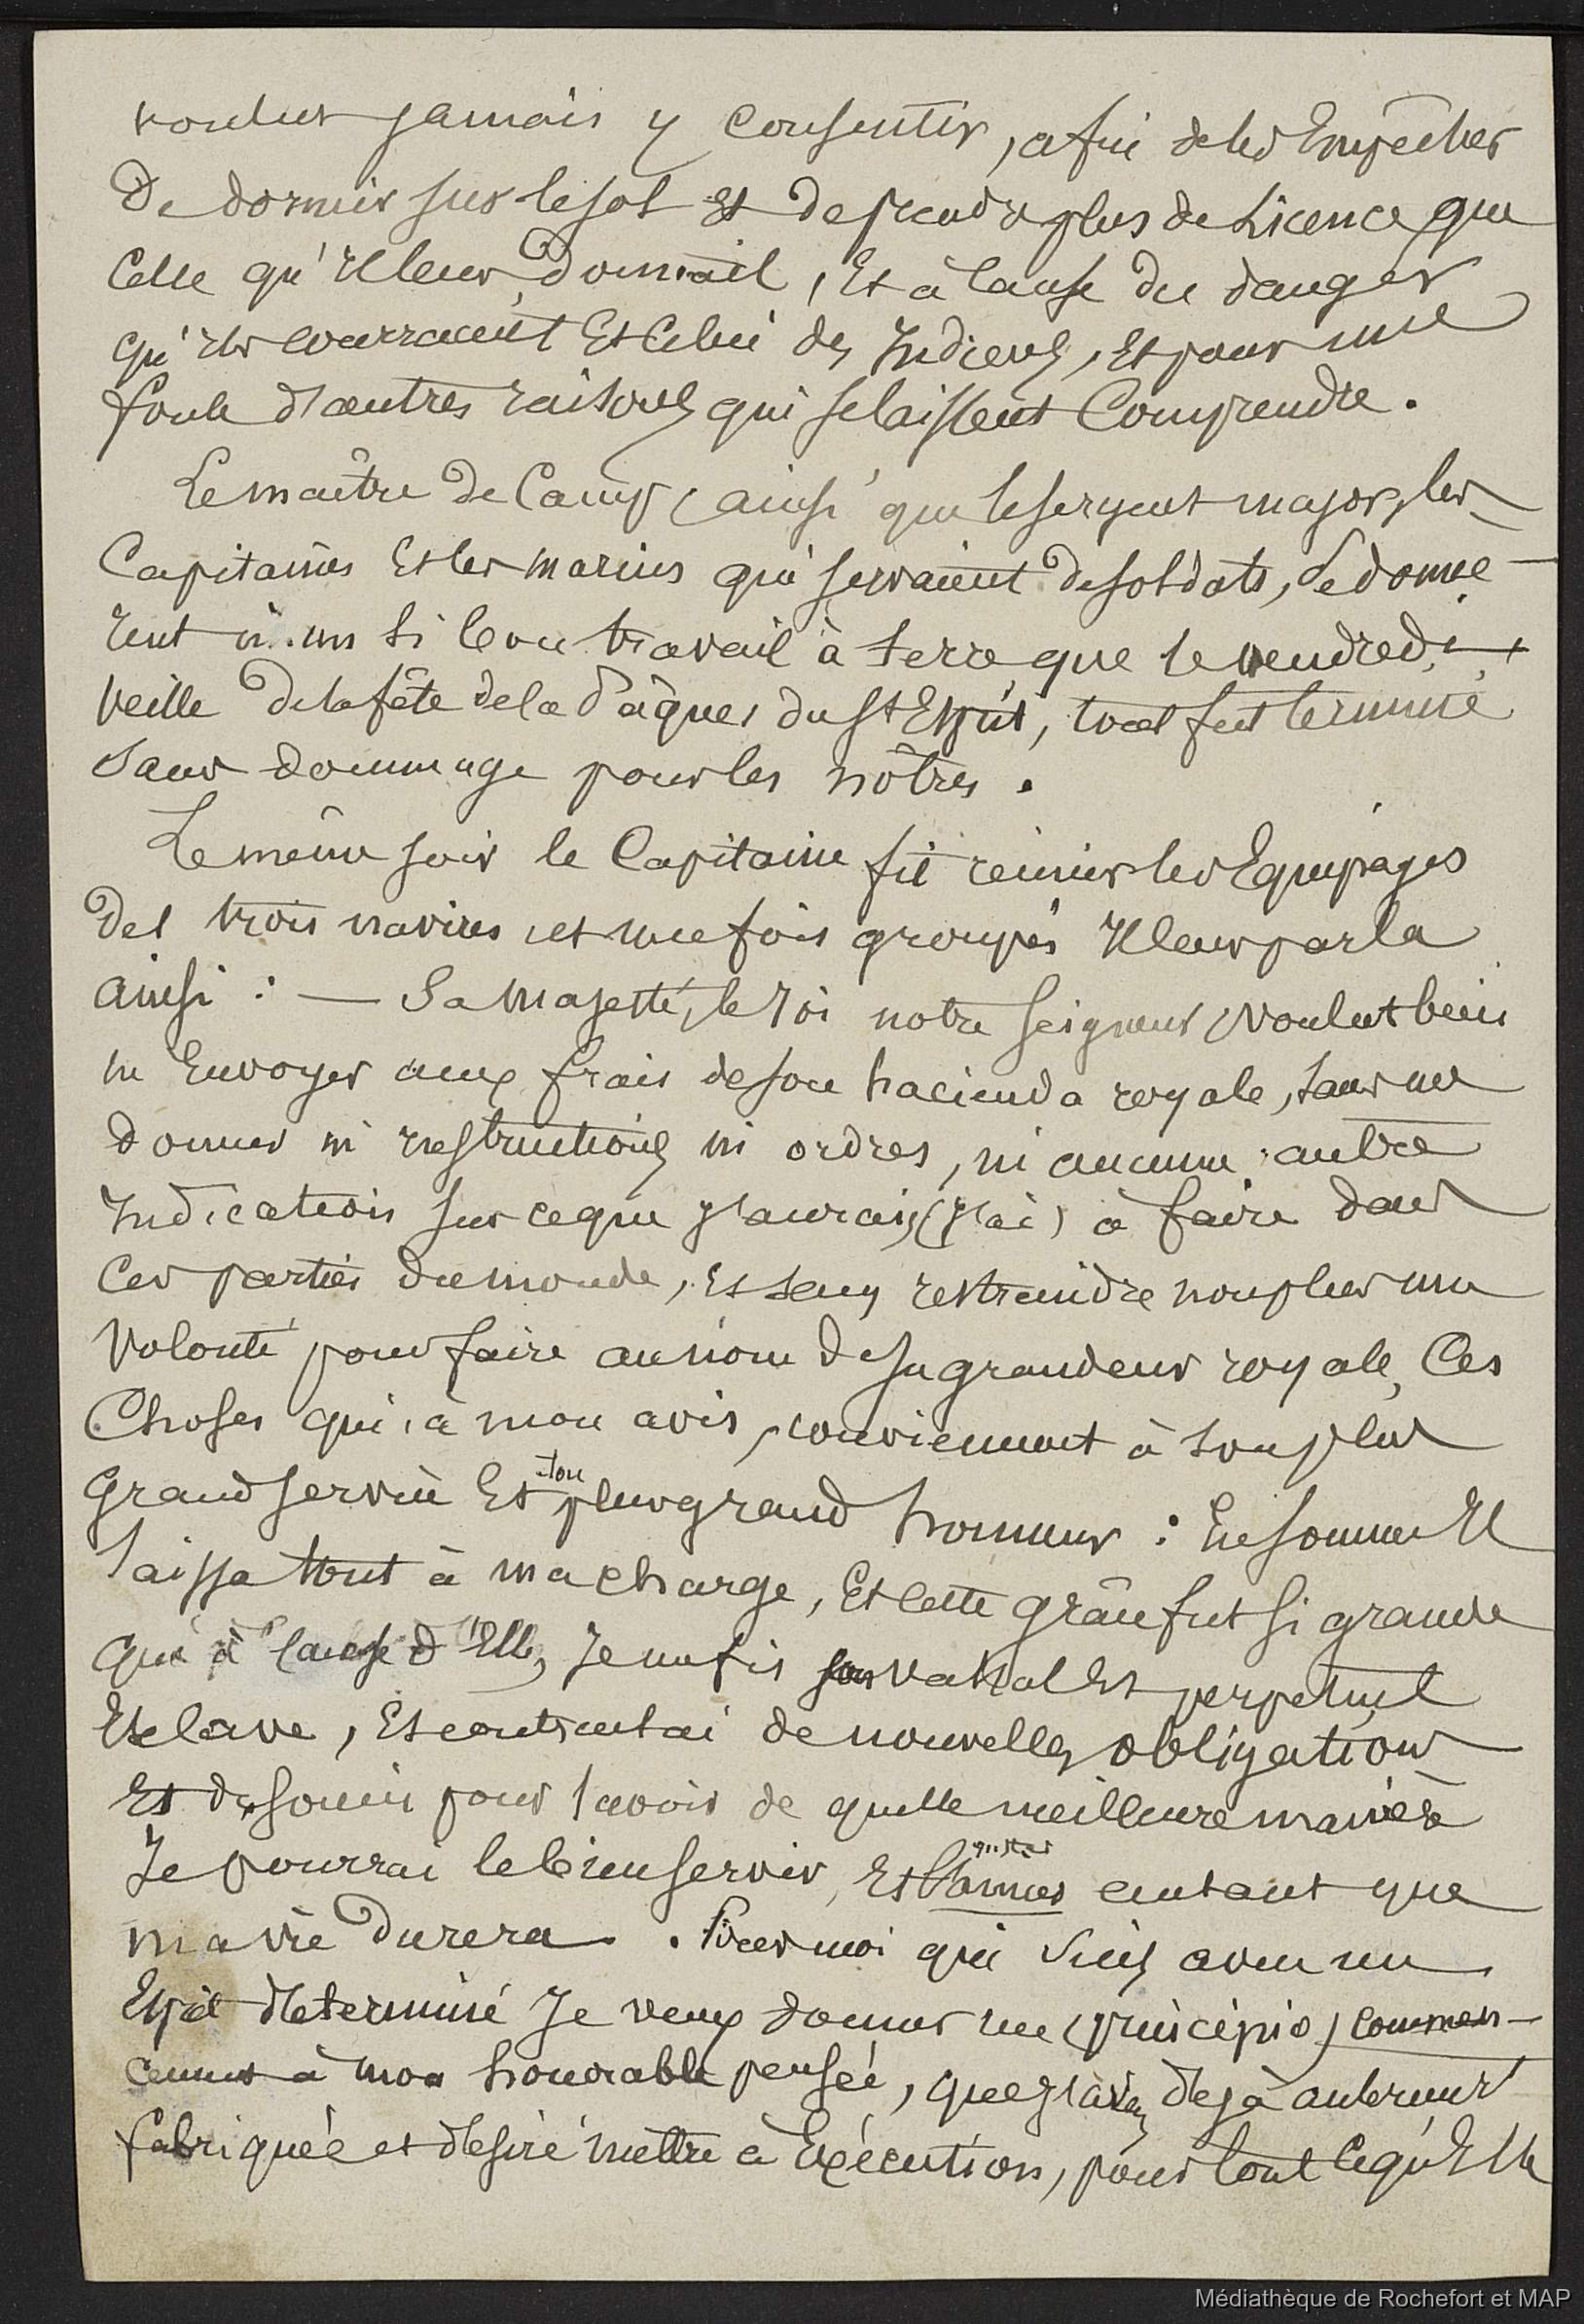 voulut jamais y consentir, afin de les Empêcher
De dormir sur le sol Et de prendre plus de Licence que
Celle qu'Il leur Donnait, Et à Cause du danger
qu'ils couraient Et Celui des Indiens, Et pour une
foule d'autres raisons qui se laissent Comprendre.
Le maître De Camp, ainsi que le sergent major, les
Capitaines Et les marins qui servaient de soldats, se donnè-
rent un si bon travail à terre que le vendredi
veille De la fête de la Pâques du St Esprit, tout fut terminé
sans dommage pour les nôtres.
Le même soir le Capitaine fit réunir les Equipages
Des trois navires, et une fois groupés Il leur parla
ainsi : — Sa Majesté, le roi notre Seigneur, voulut bien
m'Envoyer aux frais de son hacienda royale, sans me
donner ni instructions ni ordres, ni aucune autre
Indication sur ce que j'aurais (j'ai) à faire dans
Ces parties du monde, Et sans restreindre non plus ma
volonté pour faire au nom de sa grandeur royale, Ces
Choses qui, à mon avis, conviennent à son plus
Grand service Et son plus grand honneur : En somme Il
laissa tout à ma charge, Et Cette grâce fut si grande
que à Cause d'Elle, Je me fis son vassal Et perpétuel
Esclave, Et contractai de nouvelles obligations
Et de soucis pour savoir de quelle meilleure manière
Je pourrai le bien servir, Et autant que
ma vie Durera. Pour moi qui suis avec un
Esprit déterminé Je veux donner un (principio) commen-
cement à mon honorable pensée, que j'avais déjà
fabriquée et désiré mettre à Exécution, pour tout ce qu'Elle
Médiathèque de Rochefort et MAP